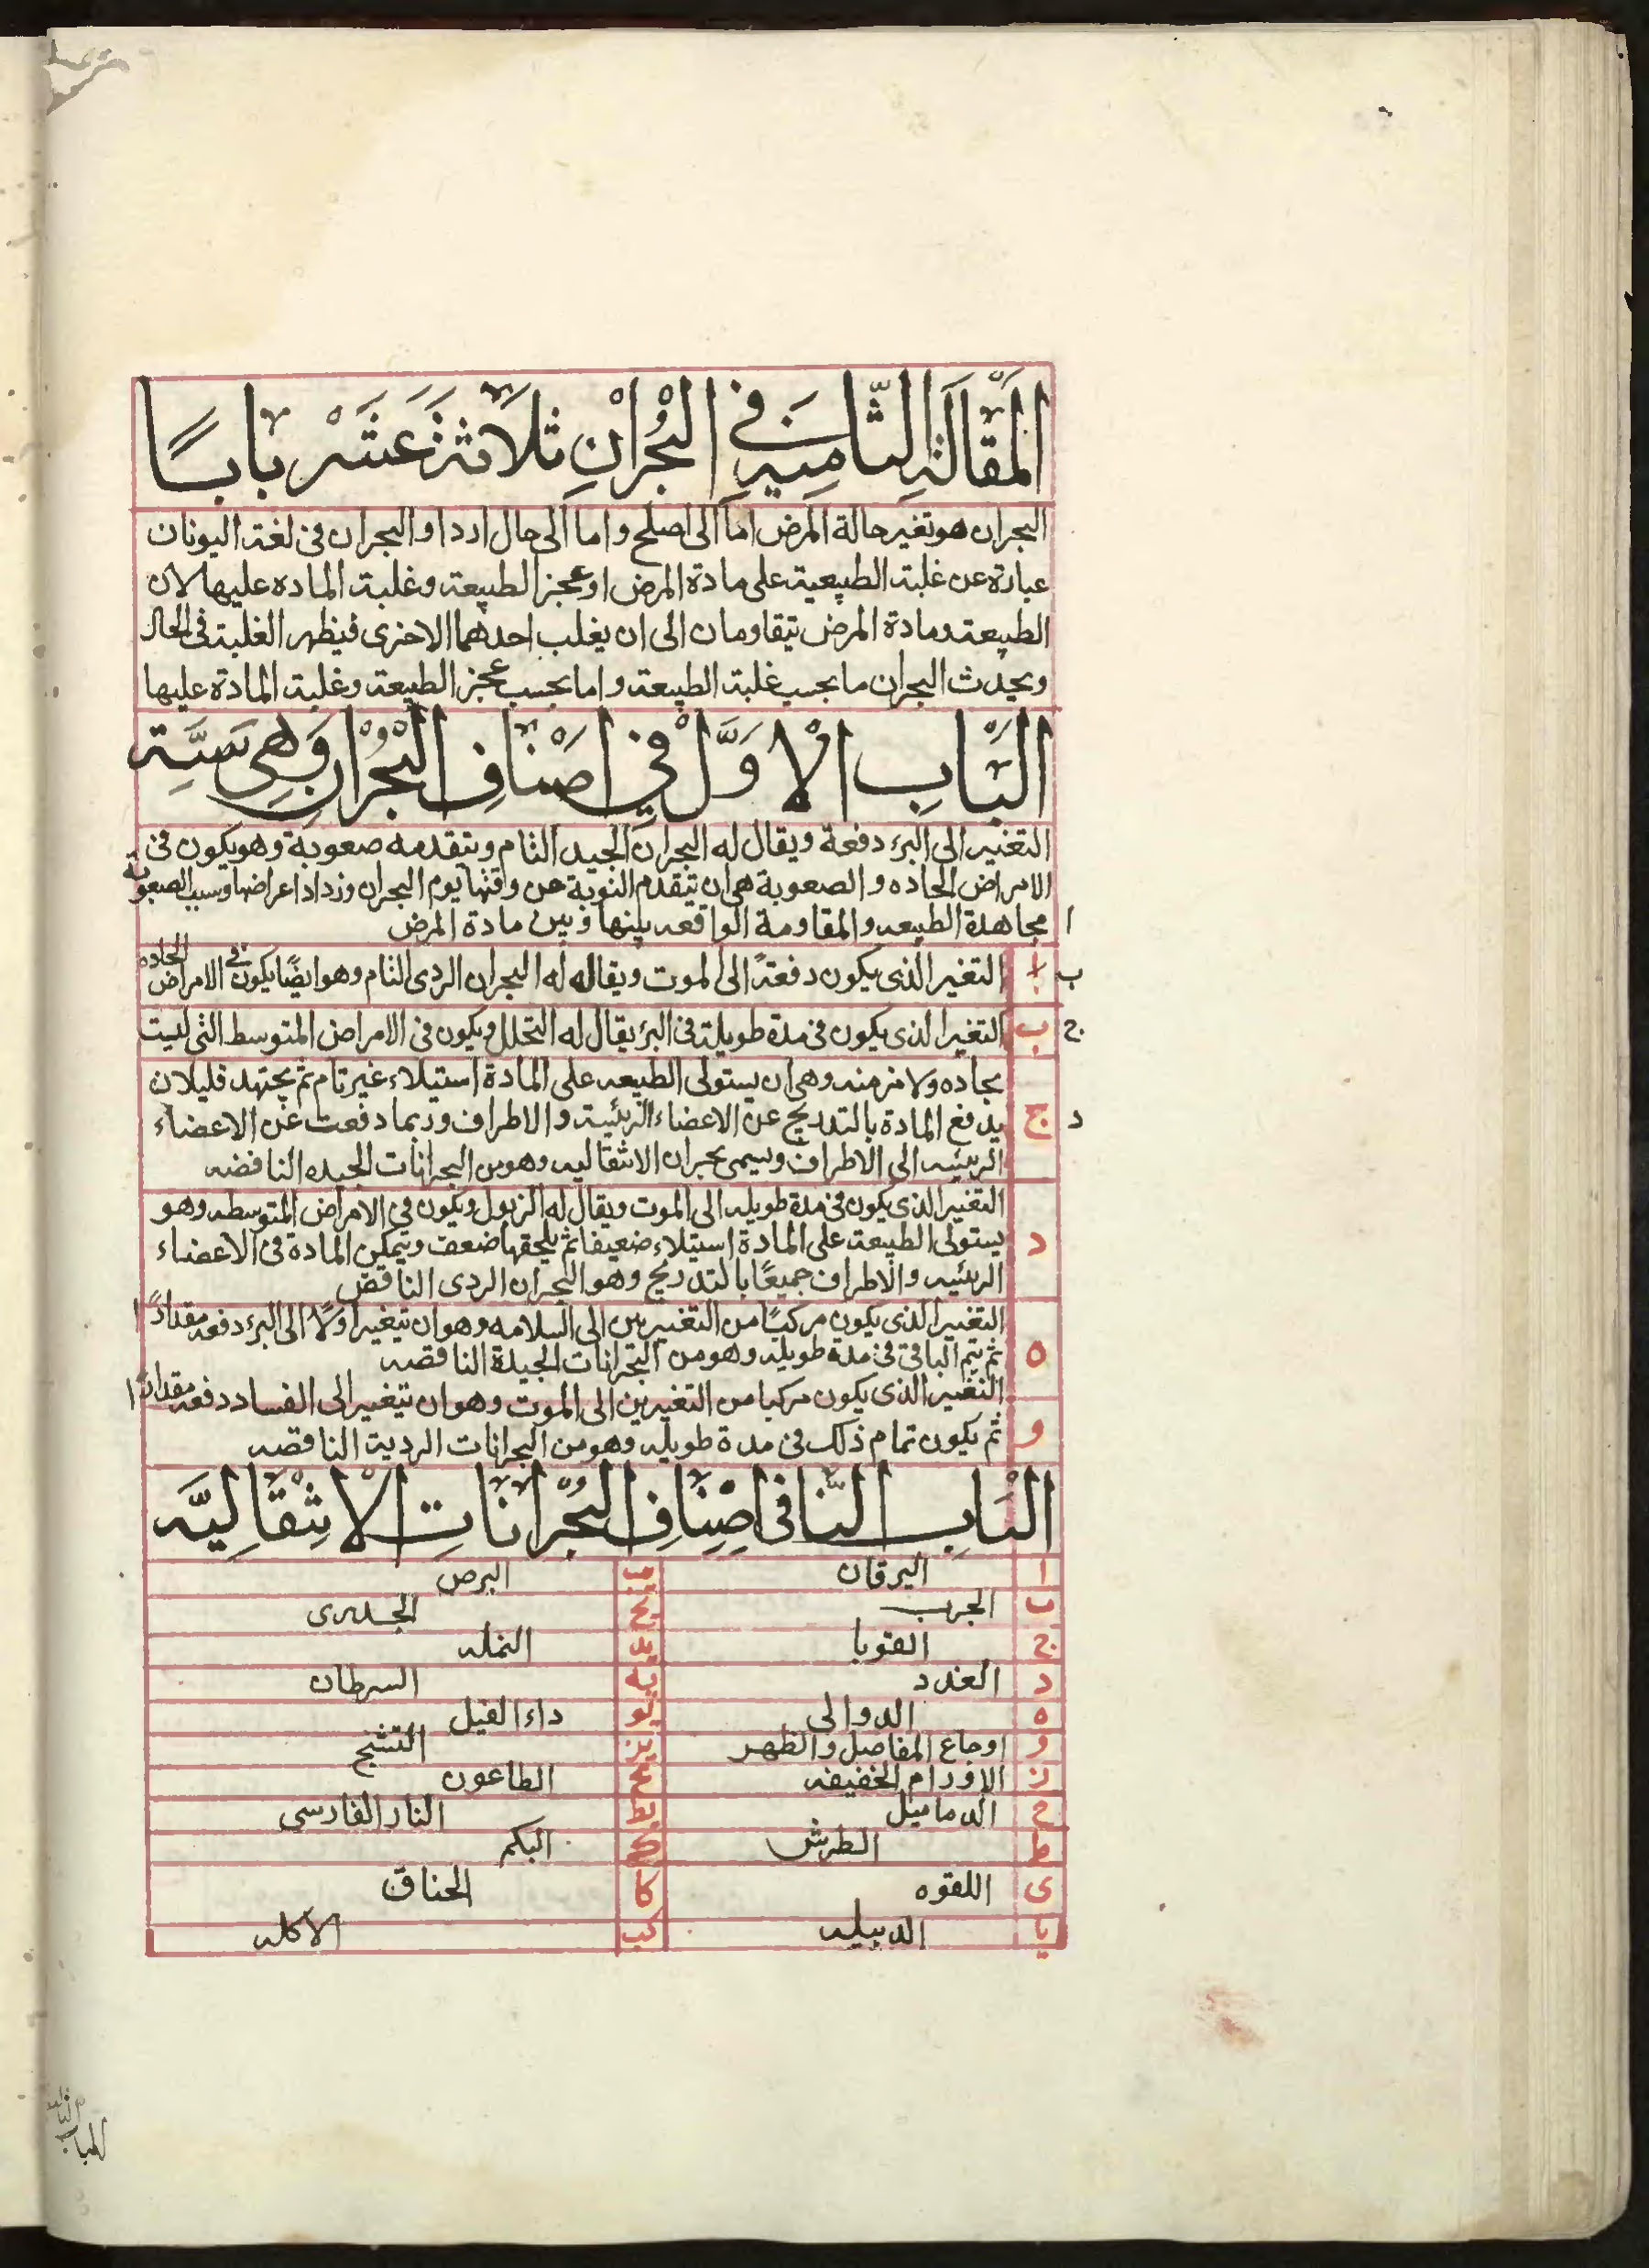 المَقَالَة الثَّامِنَة فِي البُحْرانِ ثَلَاثَةَ عَشَرَ بابًا
البحران هو تغير حالة المرض اما الى اصلح واما الى حال اردا والبحران فى لغة اليونان
عبارة عن غلبة الطبيعية على مادة المرض او عجز الطبيعة وغلبة الماده عليها لان
الطبيعة ومادة المرض تتقاومان الى ان يغلب احدهما الاخرى فيظهر الغلبة فى الحال
ويحدث البحران ما بحسب غلبة الطبيعة واما بحسب عجز الطبيعة وغلبة المادة عليها
البَاب الاوَّل فِي اصْنَافِ البُحْرانِ وَهِى سِتَّة
التغير الى البرء دفعة ويقال له البحران الجيد التام ويتقدمه صعوبة وهو يكون فى
الامراض الحاده والصعوبة هى ان تتقدم النوبة عن وقتها يوم البحران وزداد اعراضها وسبب الصعوبة
ا مجاهدة الطبيعه والمقاومة الواقعه بينها وبين مادة المرض
ب ا التغير الذى يكون دفعتًا الى الموت ويقاله له البحران الردى التام وهو ايضًا يكون فى الامراض الحاده
ج ب التغير الذى يكون فى مدة طويلة فى البرء يقال له التحلل ويكون فى الامراض المتوسط التى ليت
بحاده ولا مزمنه وهى ان يستولى الطبيعه على المادة استيلاء غير تام ثم يجتهد قليلا ن
د ج يدفع المادة بالتدريج عن الاعضاء الرئيسة والاطراف وربما دفعت عن الاعضاء
الرئيسه الى الاطراف ويسمى بحران الانتقاليه وهو من البحرانات الجيده الناقصه
التغير الذى يكون فى مدة طويله الى الموت ويقال له الزبول ويكون فى الامراض المتوسطه وهو
د يستولى الطبيعة على المادة استيلاء ضعيفا ثم يلحقها ضعف ويتمكن المادة فى الاعضاء
الرئيسه والاطراف جميعًا بالتدريج وهو البحران الردى الناقص
التغير الذى يكون مركبًا من التغيرين الى السلامه وهو ان يتغير اولًا الى البرء دفعه مقدارًا
ه ثم يتم الباقى فى مدة طويله وهو من البحرانات الجيدة الناقصه
التغير الذى يكون مركبا من التغيرين الى الموت وهو ان يتغير الى الفساد دفعه مقدارًا
و ثم يكون تمام ذلك فى مدة طويله وهو من البحرانات الردية الناقصه
البَاب الثَّنا فى اصْنَافِ البُحْرانَاتِ الانْتِقَالِيَّه
ا اليرقان يب البرص
ب الجرب يج الجدرى
ج القوبا يد النمله
د الغدد يه السرطان
ه الدوالى يو داء الفيل
و اوجاع المفاصل والظهر يز التشنج
ز الاورام الخفيفه يح الطاعون
ح الدماميل يط النار الفارسى
ط الطرش ك البكم
ى اللقوه كا الخناق
يا الدبيله كب الاكله